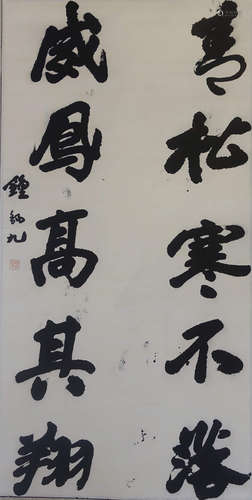 青松寒不落
威鳳高其翔
鍾毓九